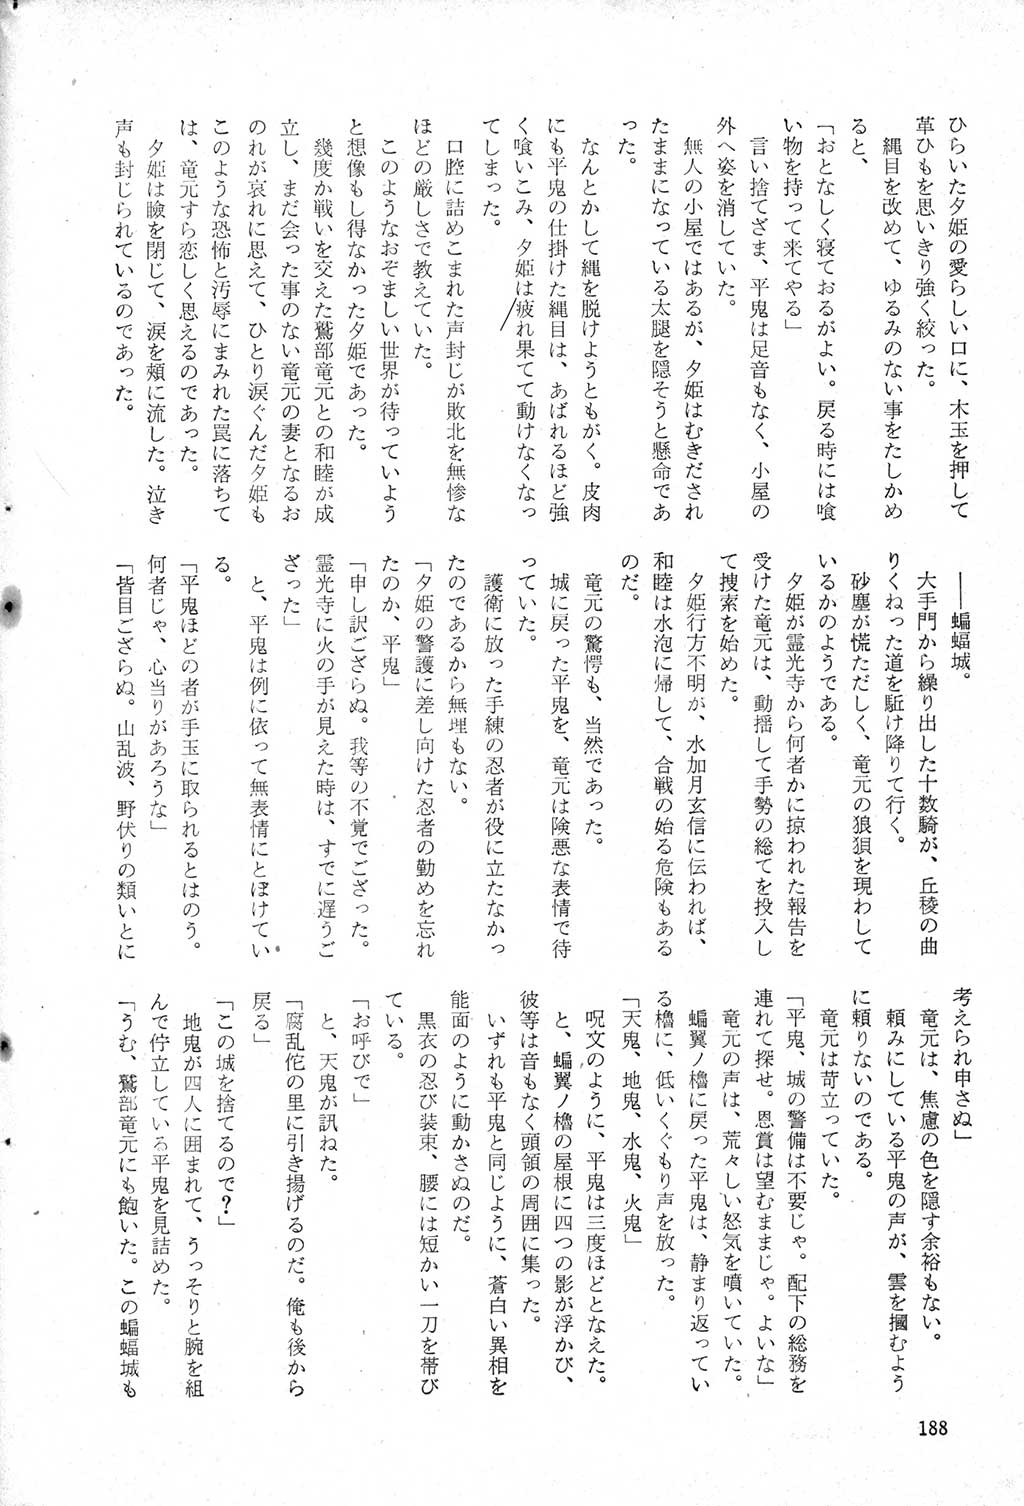 ひらいた夕姫の愛らしい口に、木玉を押して
革ひもを思いきり強く絞った。
縄目を改めて、ゆるみのない事をたしかめ
ると、
「おとなしく寝ておるがよい。戻る時には喰
い物を持って来てやる」
言い捨てざま、平鬼は足音もなく、小屋の
外へ姿を消していた。
無人の小屋ではあるが、夕姫はむきだされ
たままになっている太腿を隠そうと懸命であ
った。
なんとかして縄を脱けようともがく。皮肉
にも平鬼の仕掛けた縄目は、あばれるほど強
く喰いこみ、夕姫は疲れ果てて動けなくなっ
てしまった。
口腔に詰めこまれた声封じが敗北を無惨な
ほどの厳しさで教えていた。
このようなおぞましい世界が待っていよう
と想像もし得なかった夕姫であった。
幾度か戦いを交えた鷲部竜元との和睦が成
立し、まだ会った事のない竜元の妻となるお
のれが哀れに思えて、ひとり涙ぐんだ夕姫も
このような恐怖と汚辱にまみれた罠に落ちて
は、竜元すら恋しく思えるのであった。
夕姫は瞼を閉じて、涙を頰に流した。泣き
声も封じられているのであった。
――蝙蝠城。
大手門から繰り出した十数騎が、丘稜の曲
りくねった道を駈け降りて行く。
砂塵が慌ただしく、竜元の狼狽を現わして
いるかのようである。
夕姫が霊光寺から何者かに掠われた報告を
受けた竜元は、動揺して手勢の総てを投入し
て捜索を始めた。
夕姫行方不明が、水加月玄信に伝われば、
和睦は水泡に帰して、合戦の始る危険もある
のだ。
竜元の驚愕も、当然であった。
城に戻った平鬼を、竜元は険悪な表情で待
っていた。
護衛に放った手練の忍者が役に立たなかっ
たのであるから無理もない。
「夕姫の警護に差し向けた忍者の勤めを忘れ
たのか、平鬼」
「申し訳ござらぬ。我等の不覚でござった。
霊光寺に火の手が見えた時は、すでに遅うご
ざった」
と、平鬼は例に依って無表情にとぼけてい
る。
「平鬼ほどの者が手玉に取られるとはのう。
何者じゃ、心当りがあろうな」
「皆目ござらぬ。山乱波、野伏りの類いとに
考えられ申さぬ」
竜元は、焦慮の色を隠す余裕もない。
頼みにしている平鬼の声が、雲を摑むよう
に頼りないのである。
竜元は苛立っていた。
「平鬼、城の警備は不要じゃ。配下の総務を
連れて探せ。恩賞は望むままじゃ。よいな」
竜元の声は、荒々しい怒気を噴いていた。
蝙翼ノ櫓に戻った平鬼は、静まり返ってい
る櫓に、低いくぐもり声を放った。
「天鬼、地鬼、水鬼、火鬼」
呪文のように、平鬼は三度ほどとなえた。
と、蝙翼ノ櫓の屋根に四つの影が浮かび、
彼等は音もなく頭領の周囲に集った。
いずれも平鬼と同じように、蒼白い異相を
能面のように動かさぬのだ。
黒衣の忍び装束、腰には短かい一刀を帯び
ている。
「お呼びで」
と、天鬼が訊ねた。
「腐乱佗の里に引き揚げるのだ。俺も後から
戻る」
「この城を捨てるので？」
地鬼が四人に囲まれて、うっそりと腕を組
んで佇立している平鬼を見詰めた。
「うむ、鷲部竜元にも飽いた。この蝙蝠城も
188